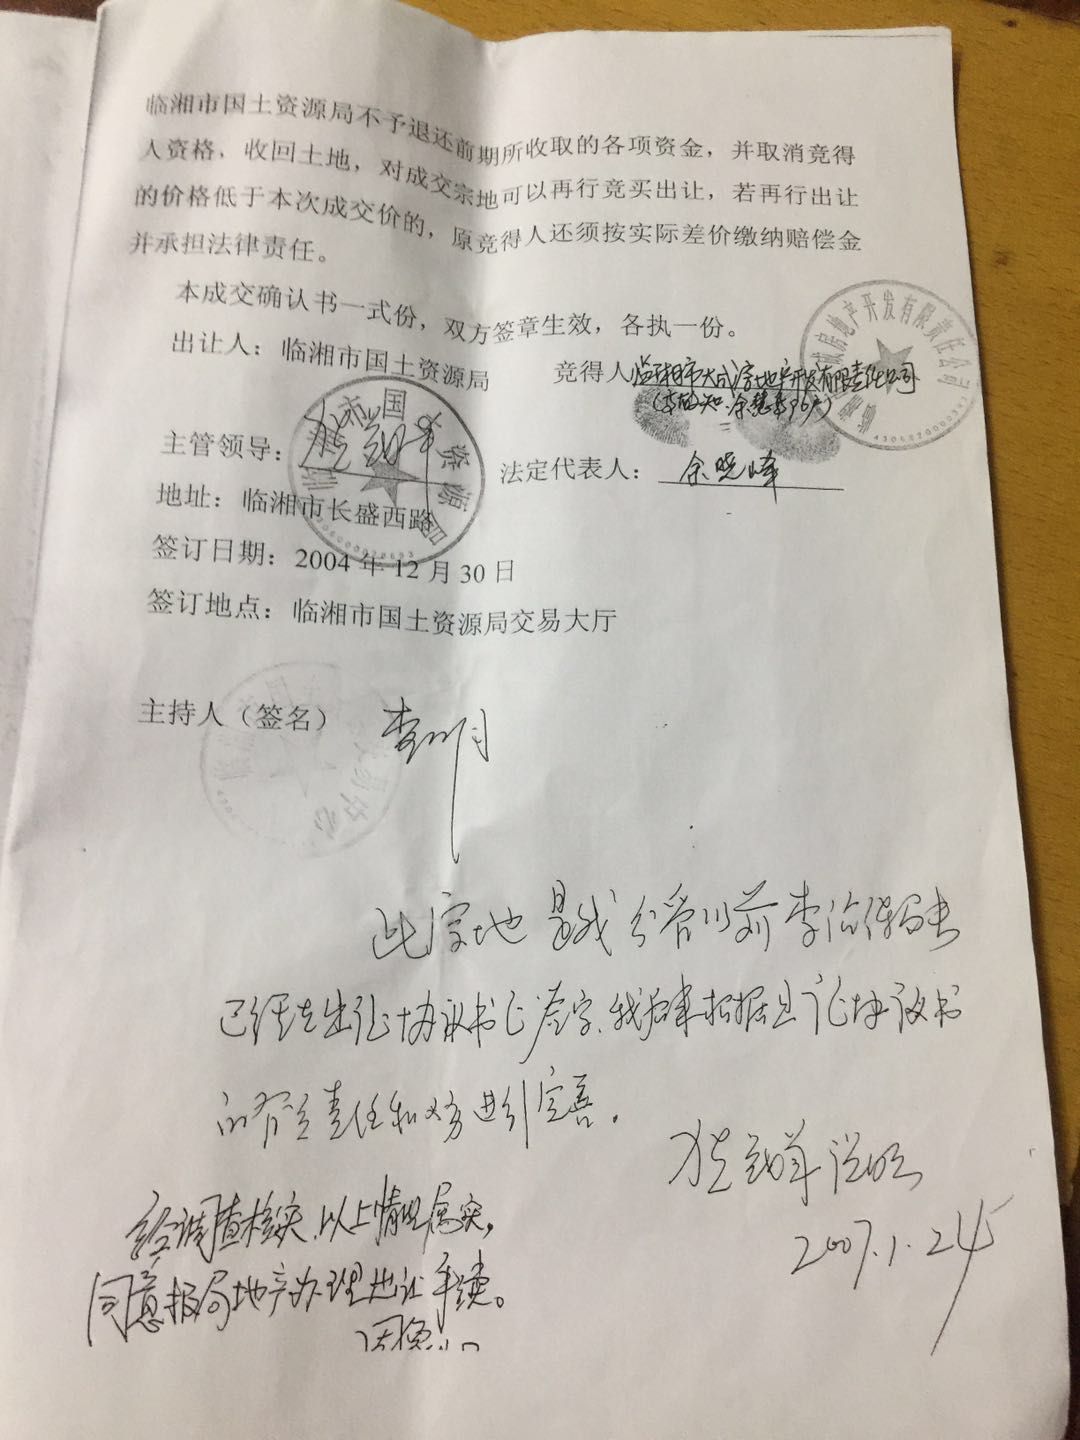 临湘市国土资源局不予退还前期所收取的各项资金，并取消竞得
人资格、收回土地，对成交宗地可以再行竞买出让，若再行出让
的价格低于本次成交价的，原竞得人还须按实际差价缴纳赔偿金
并承担法律责任。
本成交确认书一式份，双方签章生效，各执一份。
出让人：临湘市国土资源局 竞得人
房地产开发有限责任公司
主管领导：
法定代表人：余晓峰
地址：临湘市长盛西路
签订日期：2004年12月30日
签订地点：临湘市国土资源局交易大厅
主持人（签名） 李明
此宗地是我分管以前李治保局长
已经在出让协议书上签字，我后来根据出让协议书
的有关责任和义务进行完善。
说明
2007.1.24
经调查核实，以上情况属实，
同意报局地产办理出让手续。